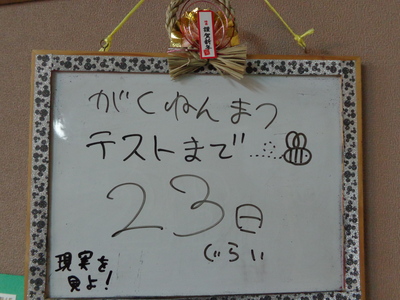 謹賀新年
がくねんまつ
テストまで
23日
ぐらい
現実を
見よ!